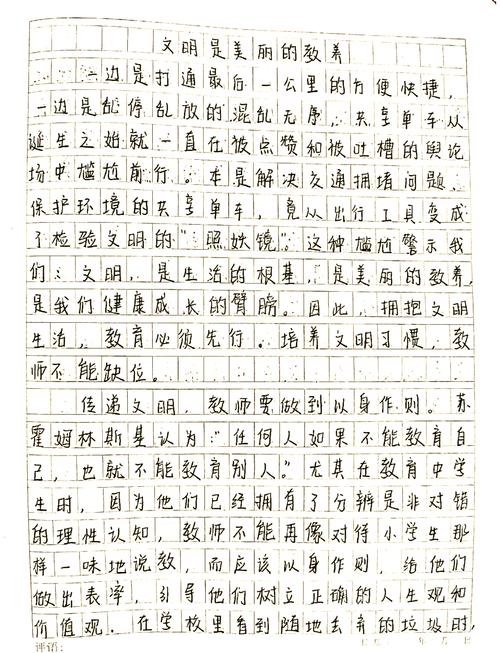 文明是美丽的教养
一边是打通最后一公里的方便快捷，
一边是乱停乱放的混乱无序，共享单车从
诞生之始就一直在被点赞和被吐槽的舆论
场中尴尬前行。本是解决交通拥堵问题、
保护环境的共享单车，竟从出行工具变成
了检验文明的“照妖镜”，这种尴尬警示我
们：文明，是生活的根基，是美丽的教养，
是我们健康成长的臂膀。因此，拥抱文明
生活，教育必须先行。培养文明习惯，教
师不能缺位。
传递文明，教师要做到以身作则。苏
霍姆林斯基认为：“任何人如果不能教育自
己，也就不能教育别人。”尤其在教育中学
生时，因为他们已经拥有了分辨是非对错
的理性认知，教师不能再像对待小学生那
样一味地说教，而应该以身作则，给他们
做出表率，引导他们树立正确的人生观和
价值观。在学校里看到随地丢弃的垃圾时，
评语：
年 月 日